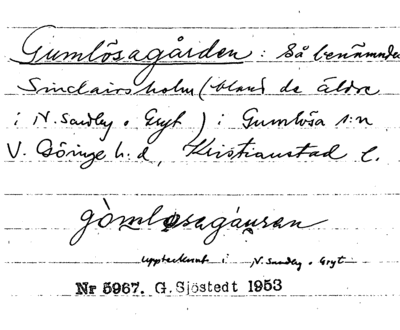 Gumlösagården : Så benämndes
Sinclairsholm (bland de äldre
i N. Sandby o Gryt) i Gumlösa s:n
V. Göinge h:d, Kristianstad l.
gòmløsagáuran
upptecknat i N. Sandby o Gryt
Nr 5967. G. Sjöstedt 1953